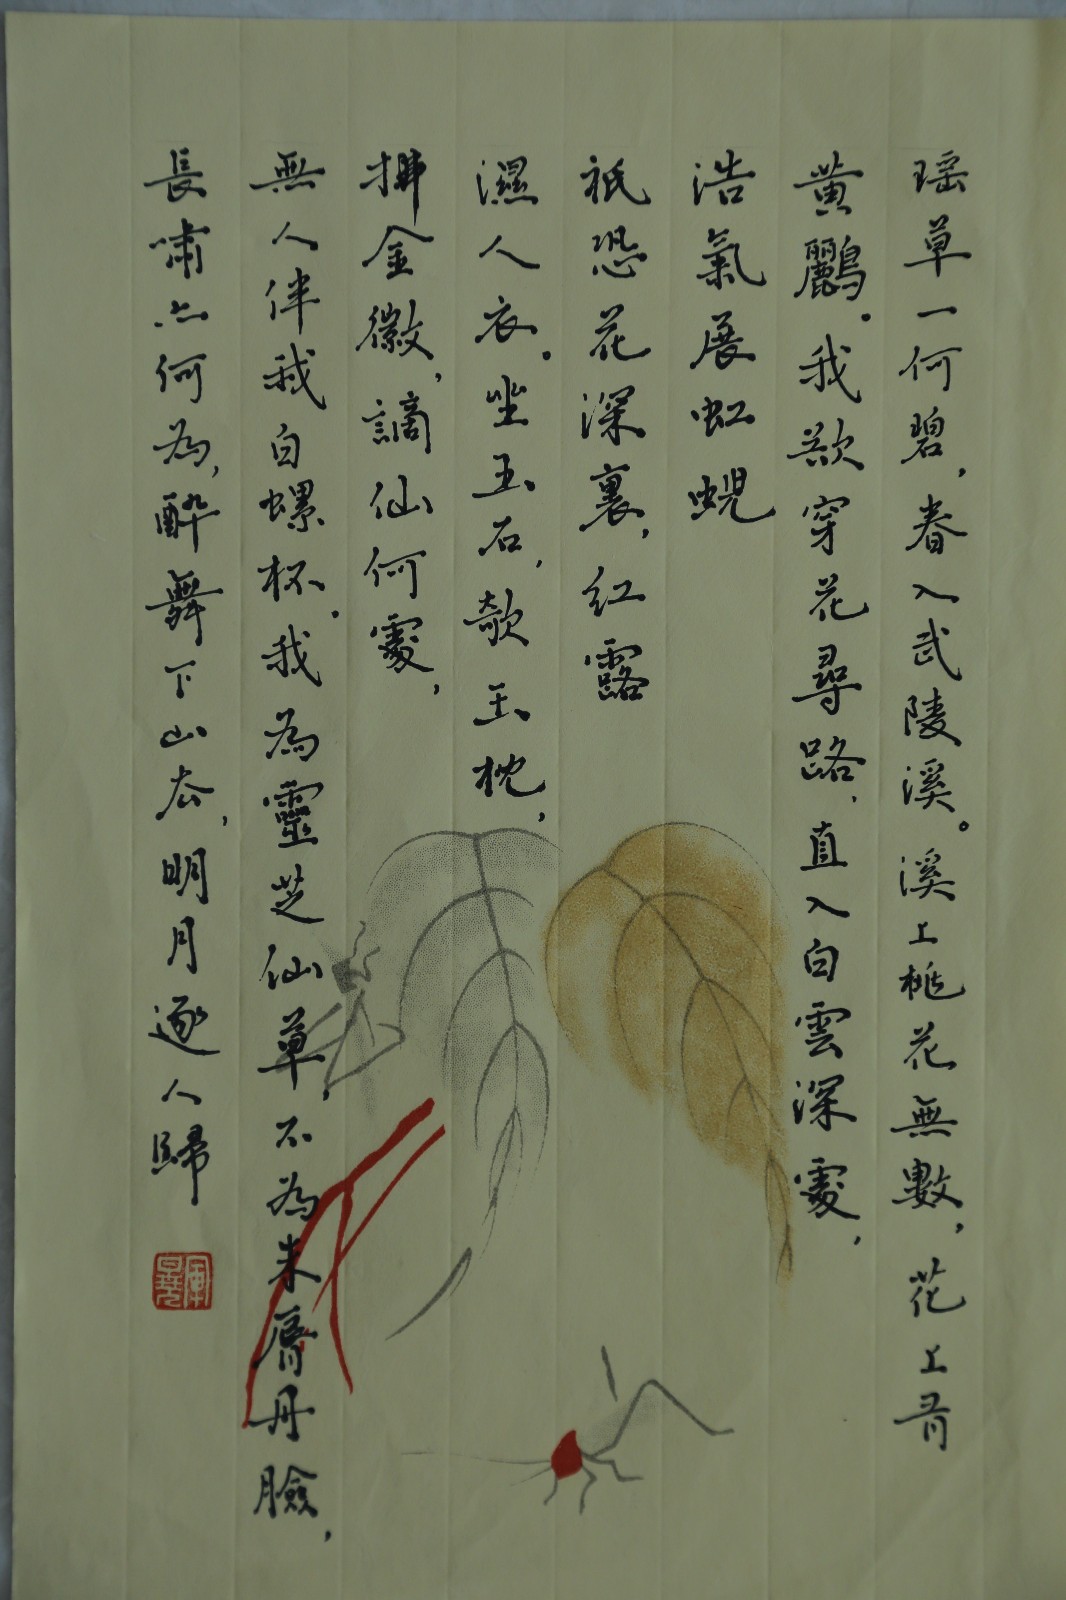 瑶草一何碧，春入武陵溪。溪上桃花無數，花上有
黄鸝。我欲穿花尋路，直入白雲深處，
浩氣展虹蜺
祇恐花深裏，紅露
濕人衣。坐玉石，欹玉枕，
拂金徽，謫仙何處，
無人伴我白螺杯。我為靈芝仙草，不為朱脣丹臉，
長嘯亦何為，醉舞下山去，明月逐人歸